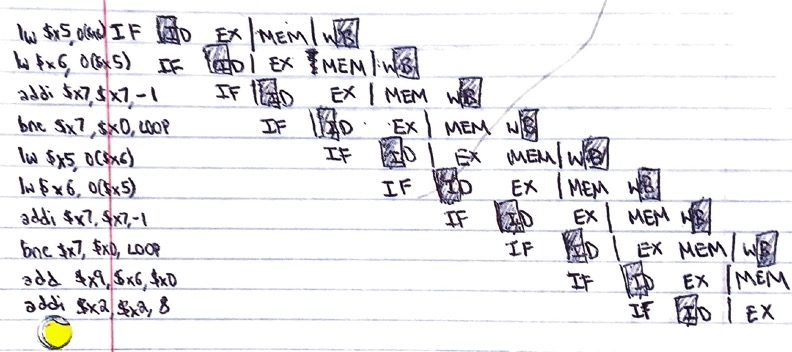 lw $x5, 0($x6) IF ID EX | MEM | WB
lw $x6, 0($x5) IF ID | EX MEM | WB
addi $x7, $x7, -1 IF | ID EX | MEM WB
bne $x7, $x0, LOOP IF | ID EX | MEM WB
lw $x5, 0($x6) IF ID | EX MEM | WB
lw $x6, 0($x5) IF ID EX | MEM WB
addi $x7, $x7, -1 IF ID EX | MEM WB
bne $x7, $x0, LOOP IF ID | EX MEM | WB
add $x9, $x6, $x0 IF ID EX | MEM
addi $x2, $x2, 8 IF ID | EX